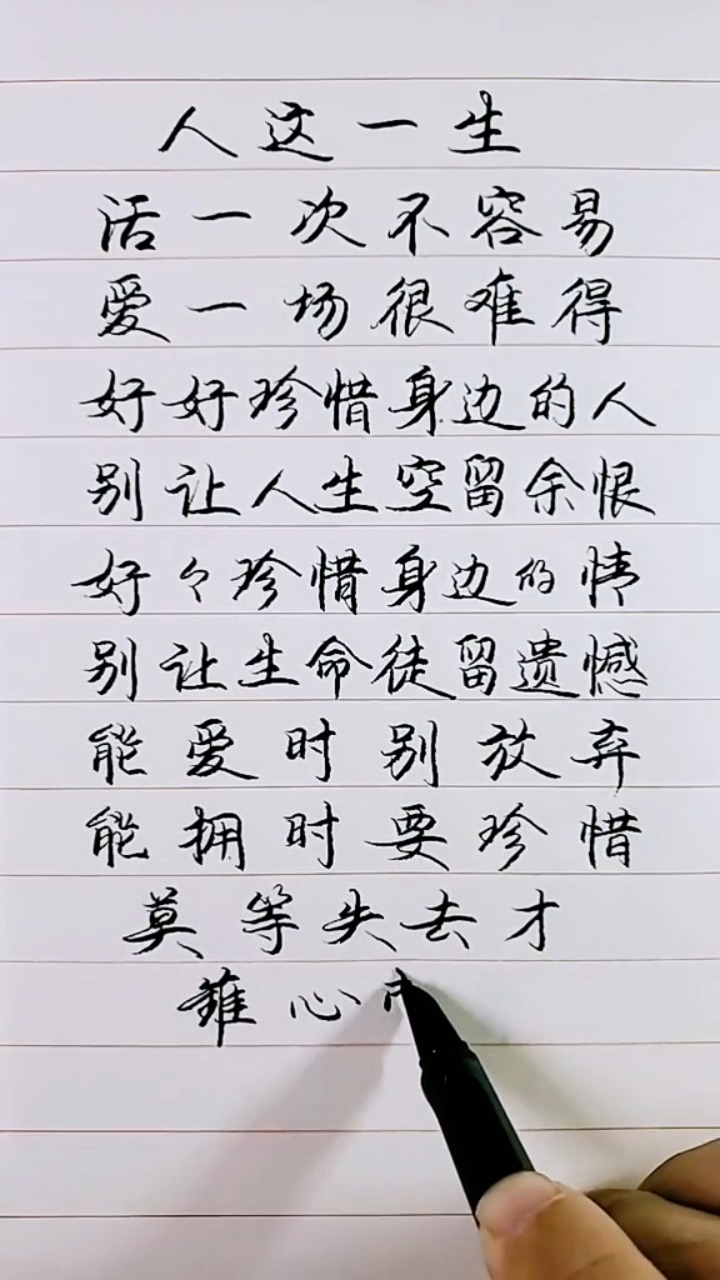 人这一生
活一次不容易
爱一场很难得
好好珍惜身边的人
别让人生空留余恨
好々珍惜身边的情
别让生命徒留遗憾
能爱时别放弃
能拥时要珍惜
莫等失去才
心